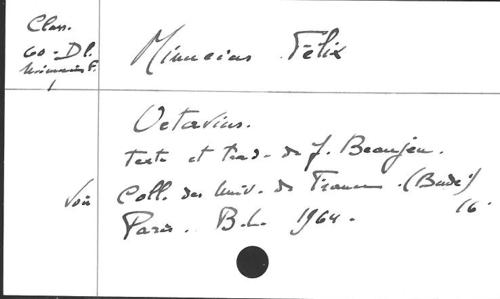 Class.
60-Dl.
Minucius F.
1
Minucius Felix
Octavius.
texte et trad. de J. Beaujeu.
Voir
Coll. des Univ. de France. (Budé)
Paris. B.L. 1964.
16